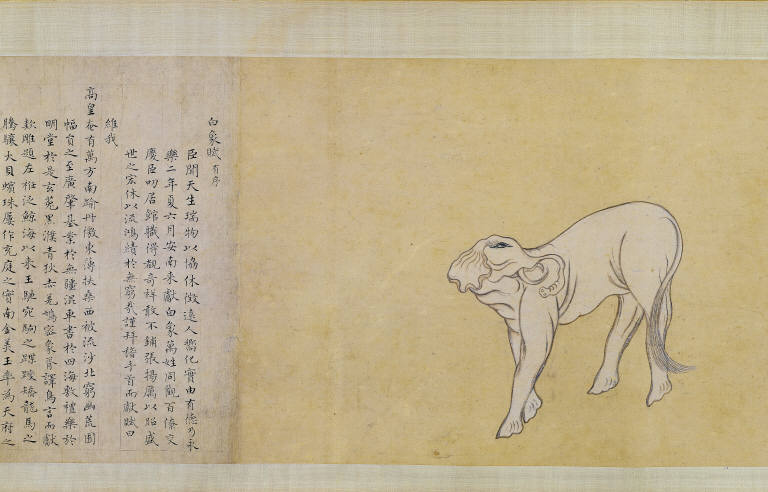 白象賦有序
臣聞天生瑞物以協休徵遠人嚮化實由有德乃永
樂二年夏六月安南來獻白象萬姓同觀百僚交
慶臣叨居館職得覩奇祥敢不鋪張揚厲以昭盛
世之宏休以流鴻績於無窮我謹拜稽手首而獻賦曰
維我
高皇奄有萬方南踰丹徼東薄扶桑西被流沙北窮幽荒圉
幅員之至廣肇基業於無疆混車書於四海敷禮樂於
明堂於是玄菟黑濮青狄赤羌鳩宓象胥譯鳥言而獻
款雕題左衽泛鯨海以來王騄宛駒之蹀躞矯龍馬之
騰驤大貝蠙珠屢作充庭之實南金美玉率為天府之